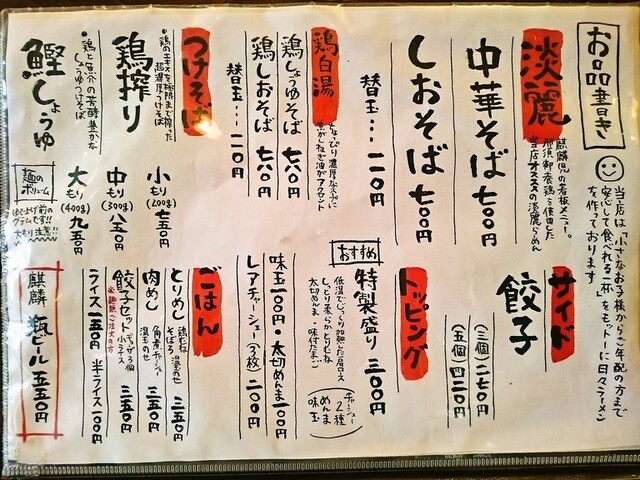 お品書き
当店は「小さなお子様からご年配の方まで
安心して食べれる一杯」をモットーに日々ラーメン
を作っております
淡麗
麒麟児の看板メニュー。
那須御養鶏を使用した
当店オススメの淡麗らぁめん
中華そば 七〇〇円
しおそば 七〇〇円
替玉… 一一〇円
鶏白湯
ちょっぴり濃厚なスープに
焦がしねぎ油がアクセント
鶏しょうゆそば 七八〇円
鶏しおそば 七八〇円
替玉… 一一〇円
つけそば
鶏のエキスを極限まで搾った
超濃厚つけそば
鶏搾り
鶏と魚介の芳醇豊かな
しょうゆつけそば
鰹しょうゆ
小もり(200g) 七五〇円
中もり(300g) 八五〇円
大もり(400g) 九五〇円
麺のボリューム
ゆで上げ前の
グラムです!!
大もり注意!!
サイド
餃子
(三個) 二七〇円
(五個) 四二〇円
トッピング
おすすめ
特製盛り 三〇〇円
低温でじっくり加熱した肩ロース
しっとり柔らかとりむね
太切めんま・味付たまご
チャーシュー2種
めんま
味玉
味玉 一〇〇円・太切めんま 一〇〇円
レアチャーシュー(3枚) 二〇〇円
ごはん
とりめし 鶏むね そぼろ 温玉のせ 二五〇円
肉めし 角煮チャーシュー 温玉のせ 三五〇円
餃子セット ギョーザ3個 小ライス 三五〇円
※麺類ご注文の方
ライス 一五〇円 半ライス 一〇〇円
麒麟 瓶ビール 五五〇円